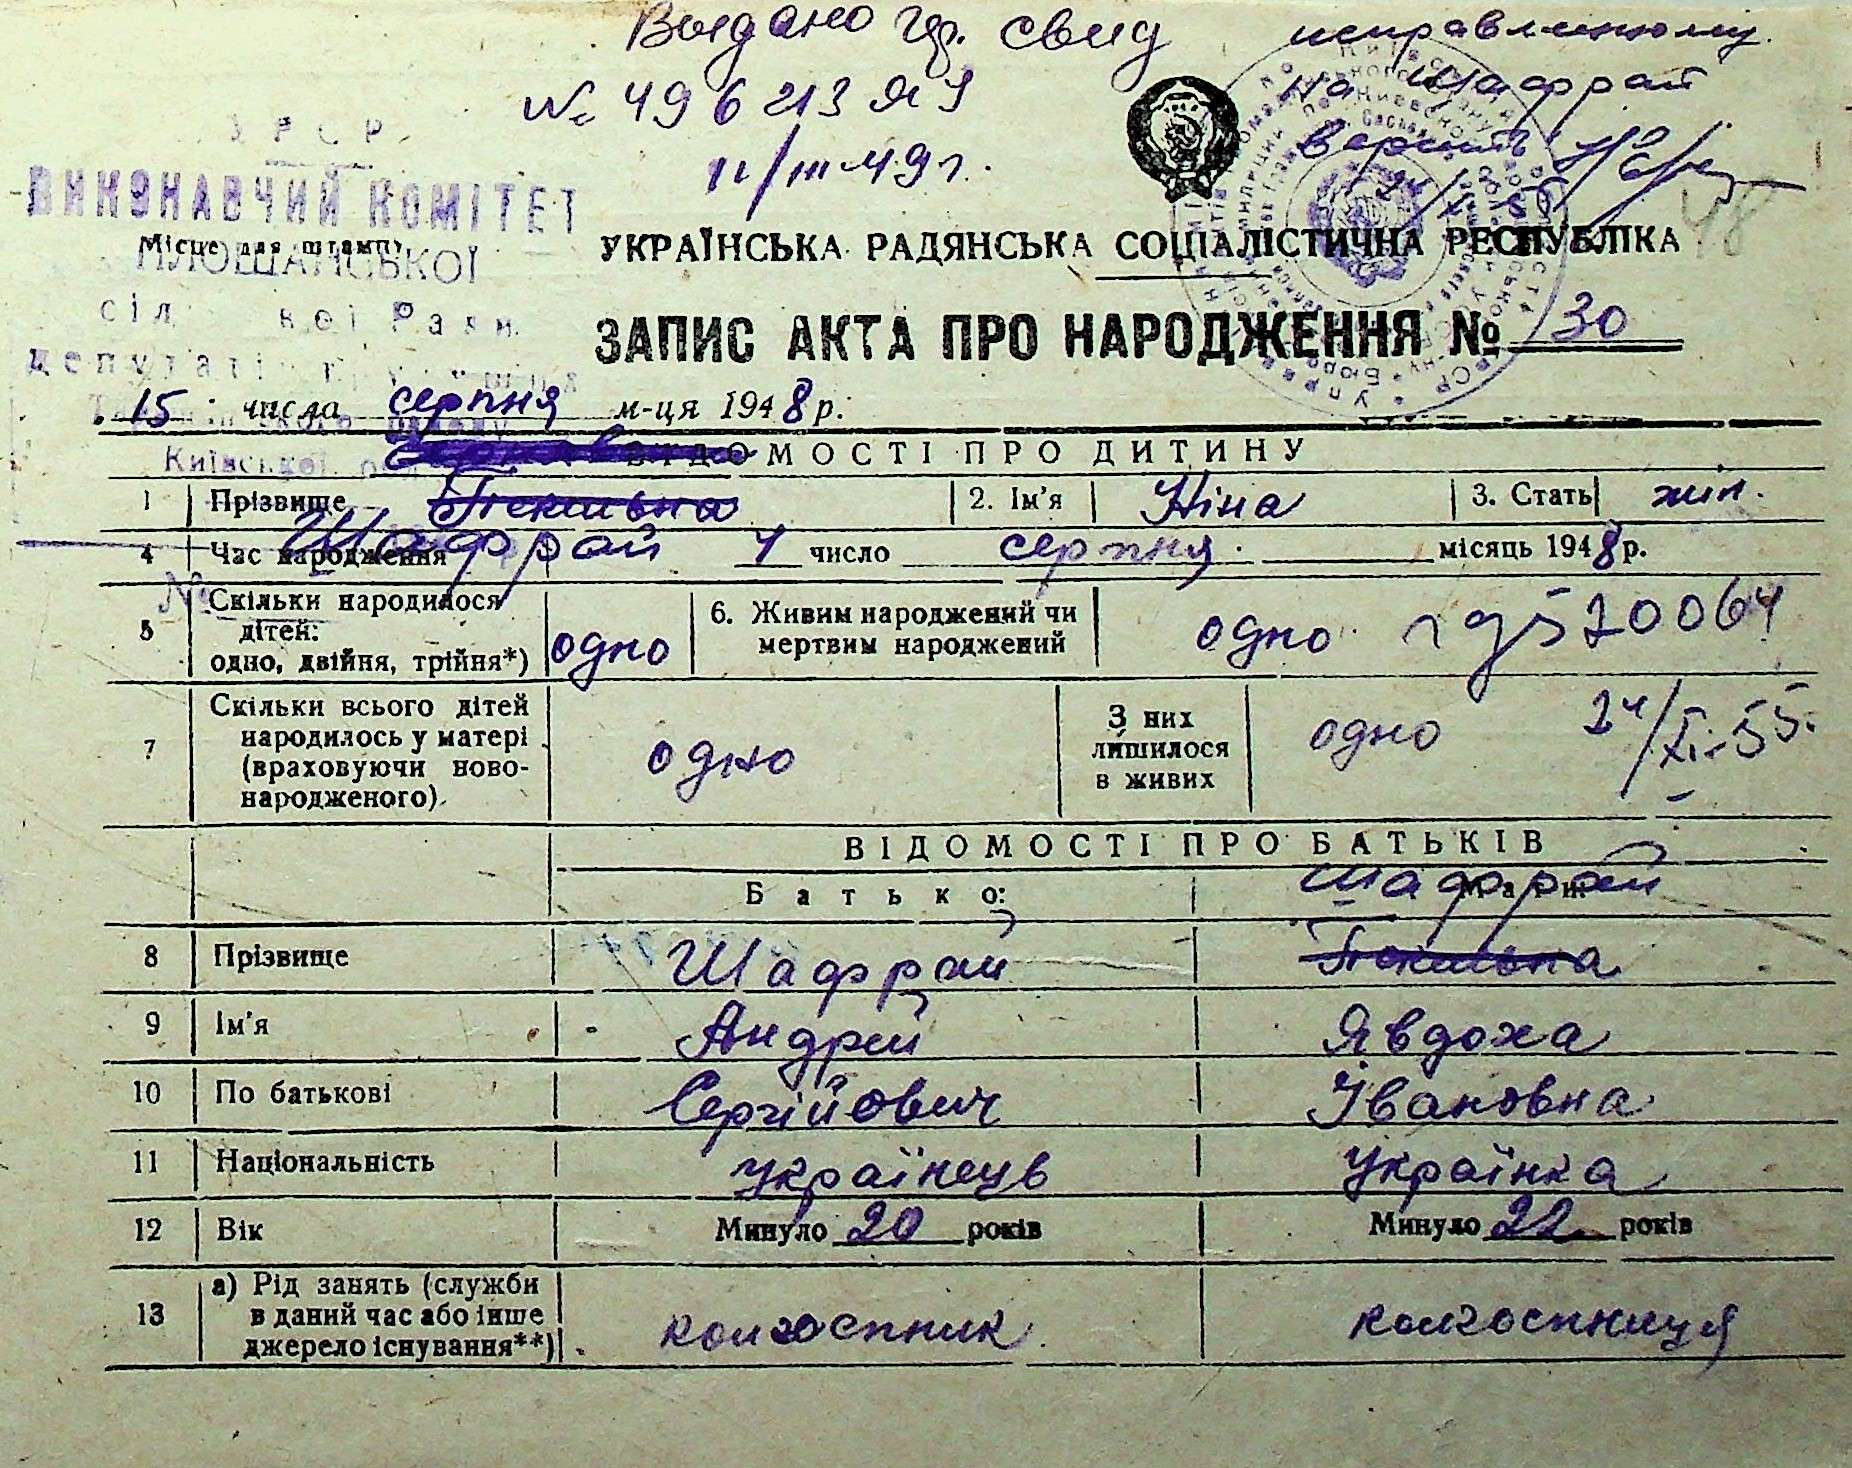 Выдано гр. свид
исправленному
№ 496213 ЯЧ
на Шафрай
11/III 49 г.
верить
48
УРСР
ВИКОНАВЧИЙ КОМІТЕТ
Місце для штампу
УКРАЇНСЬКА РАДЯНСЬКА СОЦІАЛІСТИЧНА РЕСПУБЛІКА
ЗАПИС АКТА ПРО НАРОДЖЕННЯ № 30
15 числа серпня м-ця 1948 р.
Київської
ВІДОМОСТІ ПРО ДИТИНУ
1 Прізвище Пекельна 2. Ім'я Ніна 3. Стать жін.
Шафрай
4 Час народження 4 число серпня місяць 1948 р.
5 Скільки народилося дітей: одно, двійня, трійня*) одно 6. Живим народжений чи мертвим народжений одно
520064
7 Скільки всього дітей народилось у матері (враховуючи новонародженого). одно З них лишилося в живих одно
24/XI-55.
ВІДОМОСТІ ПРО БАТЬКІВ
Батько: Мати:
Шафрай
8 Прізвище Шафрай Пекельна
9 Ім'я Андрій Явдоха
10 По батькові Сергійович Івановна
11 Національність Українець Українка
12 Вік Минуло 20 років Минуло 22 років
13 а) Рід занять (служби в даний час або інше джерело існування**) колгоспник колгоспниця